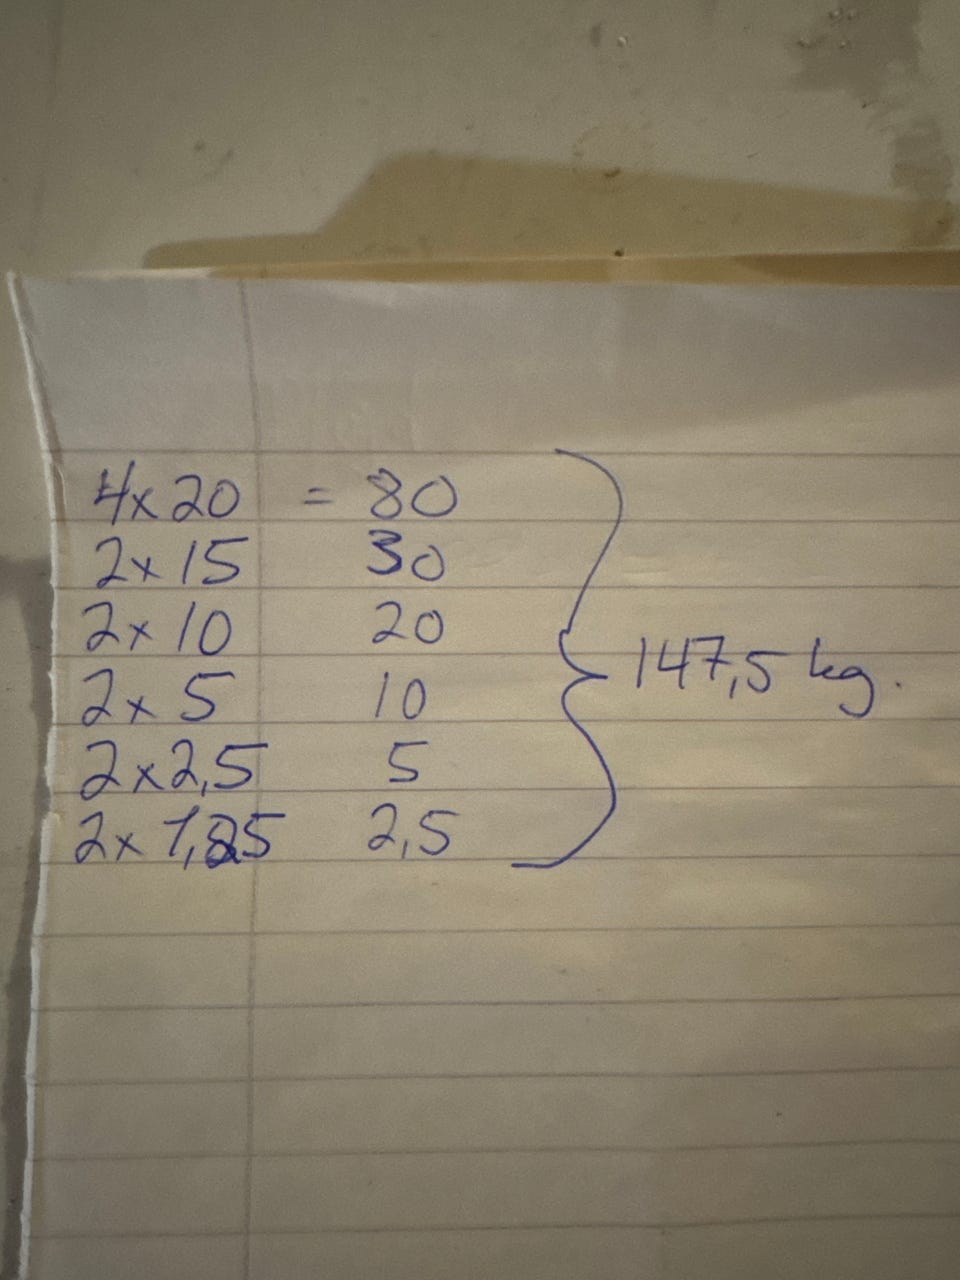 4x20 = 80
2x15 30
2x10 20
2x5 10
2x2,5 5
2x1,25 2,5
147,5 kg.